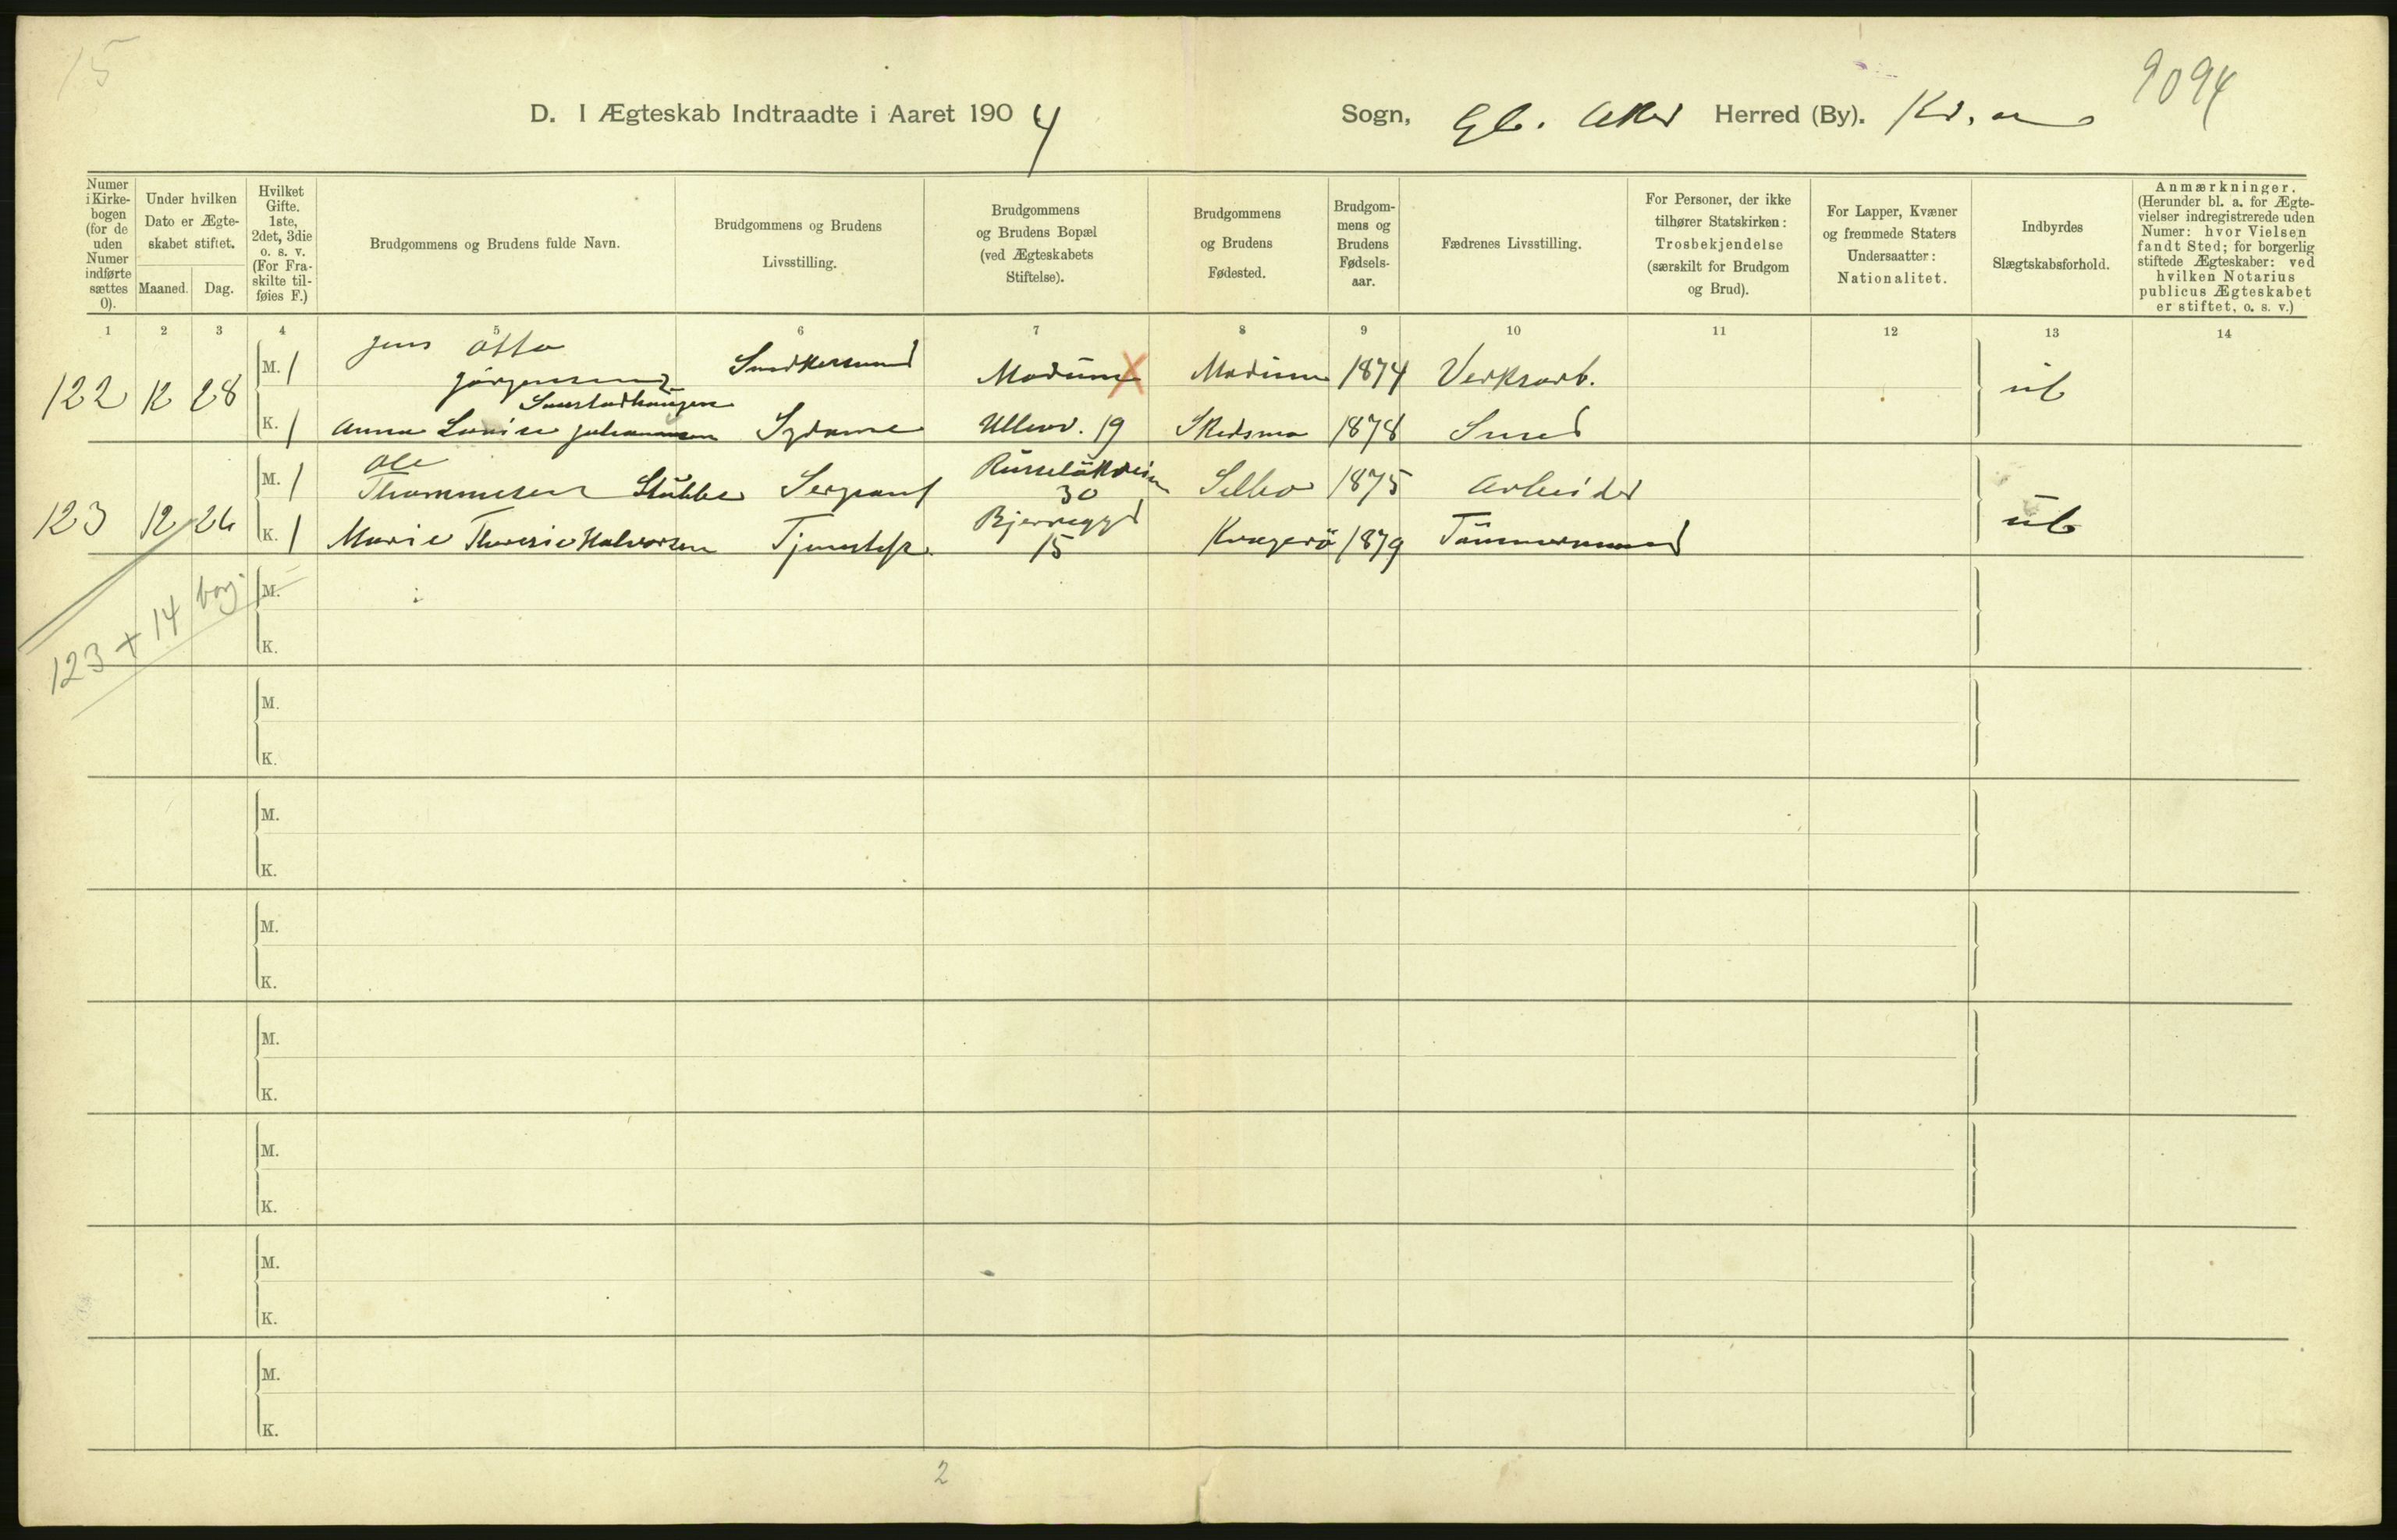 15
9094
D. I Ægteskab Indtraadte i Aaret 1904 Sogn, Gl. Aker Herred (By). Kr.a
Numer i Kirkebogen (for de uden Numer indførte sættes 0).
Under hvilken Dato er Ægteskabet stiftet.
Maaned. Dag.
Hvilket Gifte. 1ste, 2det, 3die o. s. v. (For Fraskilte tilføies F.)
Brudgommens og Brudens fulde Navn.
Brudgommens og Brudens Livsstilling.
Brudgommens og Brudens Bopæl (ved Ægteskabets Stiftelse).
Brudgommens og Brudens Fødested.
Brudgommens og Brudens Fødselsaar.
Fædrenes Livsstilling.
For Personer, der ikke tilhører Statskirken: Trosbekjendelse (særskilt for Brudgom og Brud).
For Lapper, Kvæner og fremmede Staters Undersaatter: Nationalitet.
Indbyrdes Slægtskabsforhold.
Anmærkninger. (Herunder bl. a. for Ægtevielser indregistrerede uden Numer: hvor Vielsen fandt Sted; for borgerlig stiftede Ægteskaber: ved hvilken Notarius publicus Ægteskabet er stiftet, o. s. v.)
1 2 3 4 5 6 7 8 9 10 11 12 13 14
122 12 28 M. 1 Jens Otto Jörgensen Modum X Modum 1874 Verksarb. ub
K. 1 Anna Lovise Johannesen Sydame Ullevv. 19 Skedsmo 1878 Smed
123 12 26 M. 1 Ole Thommesen Stubbe Sergeant Russelökveien 30 Selbo 1875 Arbeider ub
K. 1 Marie Theresie Halvorsen Tjenestep. Bjerregd 15 Kragerö 1879 Tömmermand
123 + 14 borg.
M.
K.
M.
K.
M.
K.
M.
K.
M.
K.
M.
K.
M.
K.
M.
K.
2